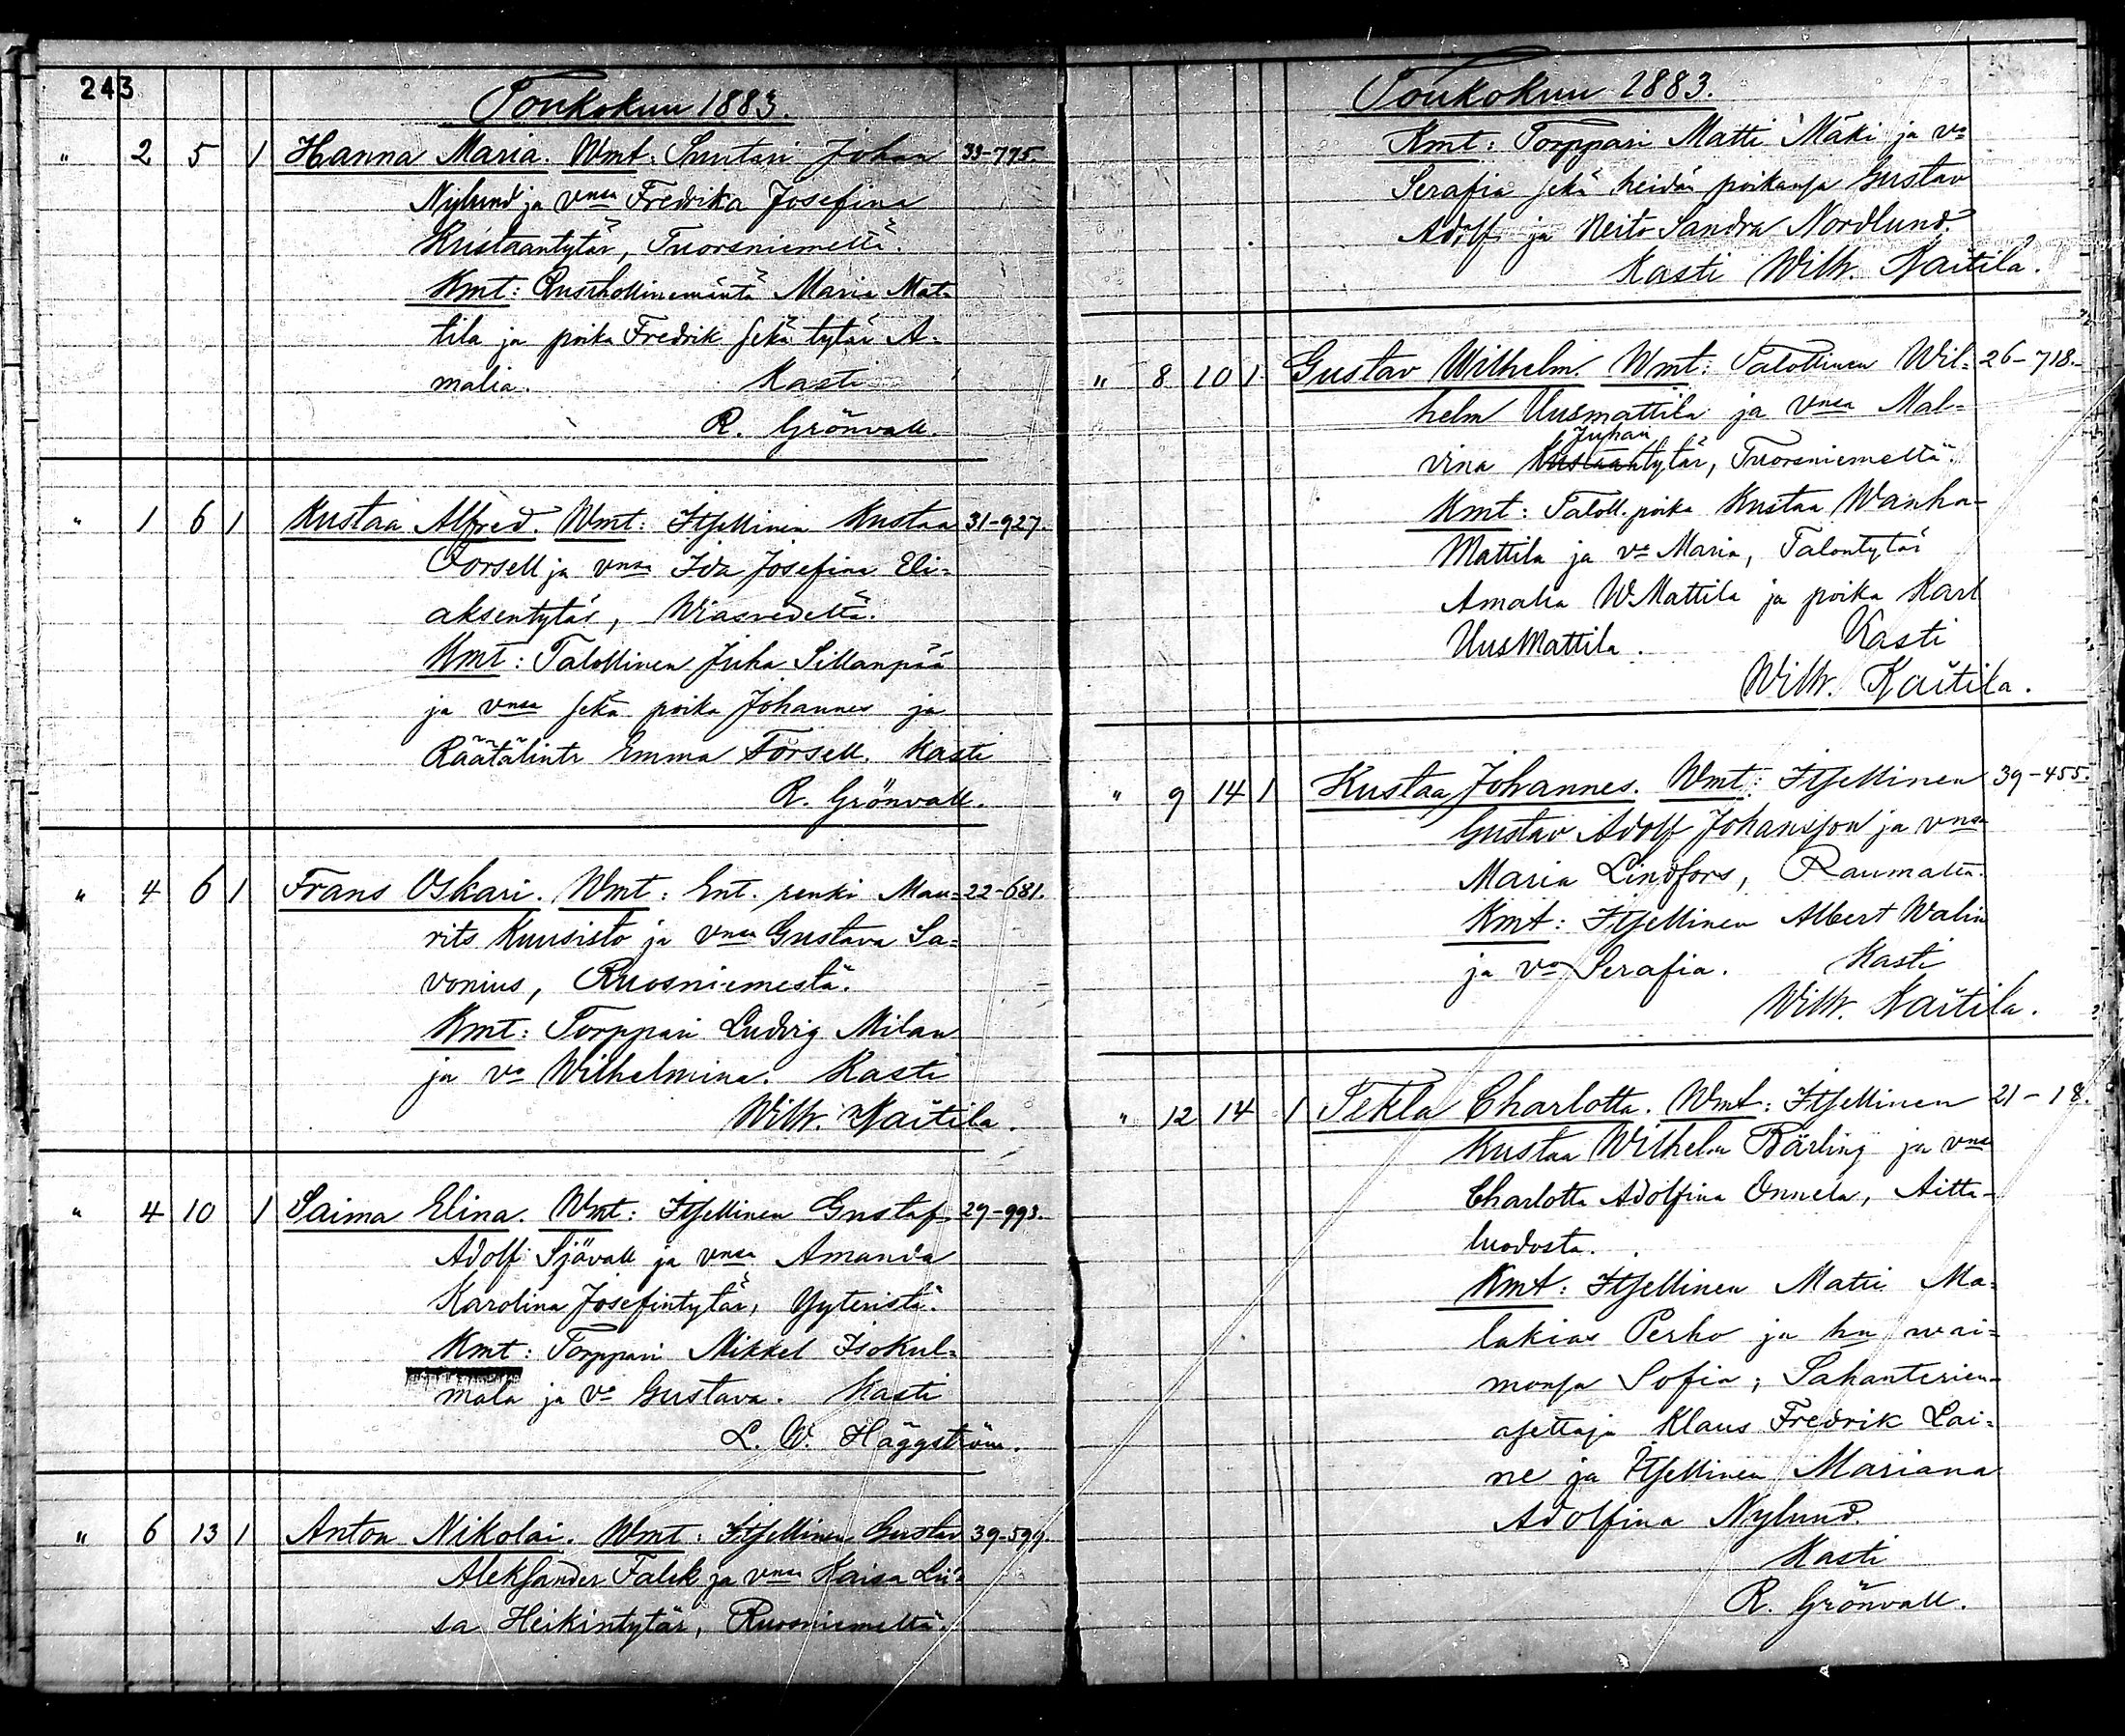 243
Toukokuu 1883.
" 2 5 1 Hanna Maria. Wmt: Suutari Johan 33-775.
Nylund ja vnsa Fredrika Josefina
Kustaantytär, Tuorsniemeltä.
Kmt: Rusthollinemäntä Maria Mat-
tila ja poika Fredrik sekä tytär A-
malia. Kasti
R. Grönvall.
" 1 6 1 Kustaa Alfred. Wmt: Itsellinen Kustaa 31-927.
Forsell ja vnsa Ida Josefina Eli-
aksentytär, Wiasvedeltä.
Kmt: Talollinen Juha Sillanpää
ja vnsa sekä poika Johannes ja
Räätälintr Emma Forsell. Kasti
R. Grönvall.
" 4 6 1 Frans Oskari. Wmt: Ent. renki Mau- 22-681.
rits Kuusisto ja vnsa Gustava Sa-
vonius, Ruosniemestä.
Kmt: Torppari Ludvig Milan
ja va Wilhelmina. Kasti
Wilh. Kaitila.
" 4 10 1 Saima Elina. Wmt: Itsellinen Gustaf 29-993.
Adolf Sjövall ja vnsa Amanda
Karolina Josefintytär, Yyteristä.
Kmt: Torppari Mikkel Isokul-
mala ja va Gustava. Kasti
L. W. Häggström.
" 6 13 1 Anton Nikolai. Wmt: Itsellinen Gustav 39-599.
Aleksander Falck ja vnsa Kaisa Lii-
sa Heikintytär, Ruosniemeltä.
Toukokuu 1883.
Kmt: Torppari Matti Mäki ja va
Serafia sekä heidän poikansa Gustav
Adolf ja Neito Sandra Nordlund.
Kasti Wilh. Kaitila.
" 8 10 1 Gustav Wilhelm. Wmt: Talollinen Wil- 26-718.
helm Uusmattila ja vnsa Mal-
Juhan
vina Kustaantytär, Tuorsniemeltä.
Kmt: Taloll. poika Kustaa Wanha-
Mattila ja va Maria, Talontytär
Amalia W.Mattila ja poika Karl
UusMattila. Kasti
Wilh. Kaitila.
" 9 14 1 Kustaa Johannes. Wmt: Itsellinen 39-455.
Gustav Adolf Johansson ja vnsa
Maria Lindfors, Raumalta.
Kmt: Itsellinen Albert Walin
ja va Serafia. Kasti
Wilh. Kaitila.
" 12 14 1 Tekla Charlotta. Wmt: Itsellinen 21-18.
Kustaa Wilhelm Bärling ja vnsa
Charlotta Adolfina Onnela, Aitta-
luodosta.
Kmt: Itsellinen Matti Ma-
lakias Perho ja hn wai-
monsa Sofia; Sahanterien-
asettaja Klaus Fredrik Lai-
ne ja Itsellinen Mariana
Adolfina Nylund.
Kasti
R. Grönvall.